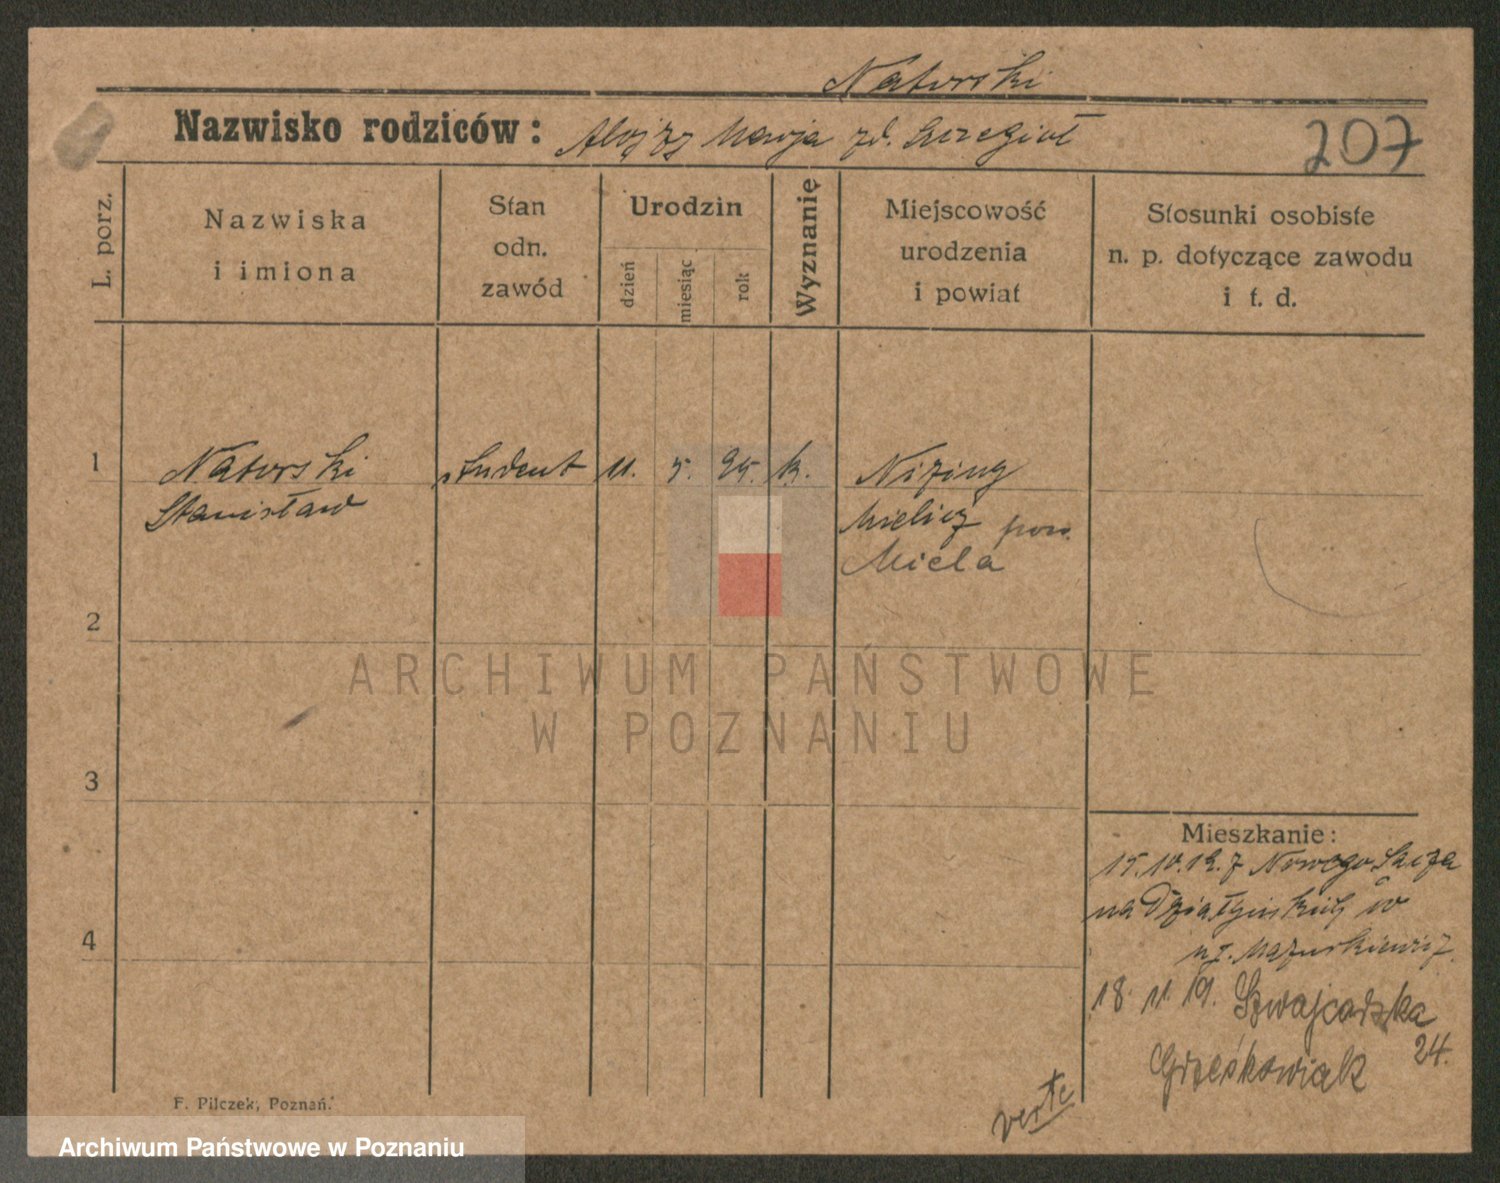 Natorski
Nazwisko rodziców: Alojzy Marja zd. Szczegioł
207
L. porz.
Nazwiska
i imiona
Stan
odn.
zawód
Urodzin
dzień
miesiąc
rok
Wyznanie
Miejscowość
urodzenia
i powiat
Stosunki osobiste
n. p. dotyczące zawodu
i t. d.
1 Natorski student 11. 5. 95. k. Niziny
Stanisław Mielicz pow.
Miela
2
ARCHIWUM PAŃSTWOWE
W POZNANIU
3
Mieszkanie:
15.10.19. z Nowego Sącza
na Działyńskich
u Mazurkiewicz.
4
18. 11. 19. Szwajcarska
24.
Grześkowiak
verte
F. Pilczek, Poznań.
Archiwum Państwowe w Poznaniu